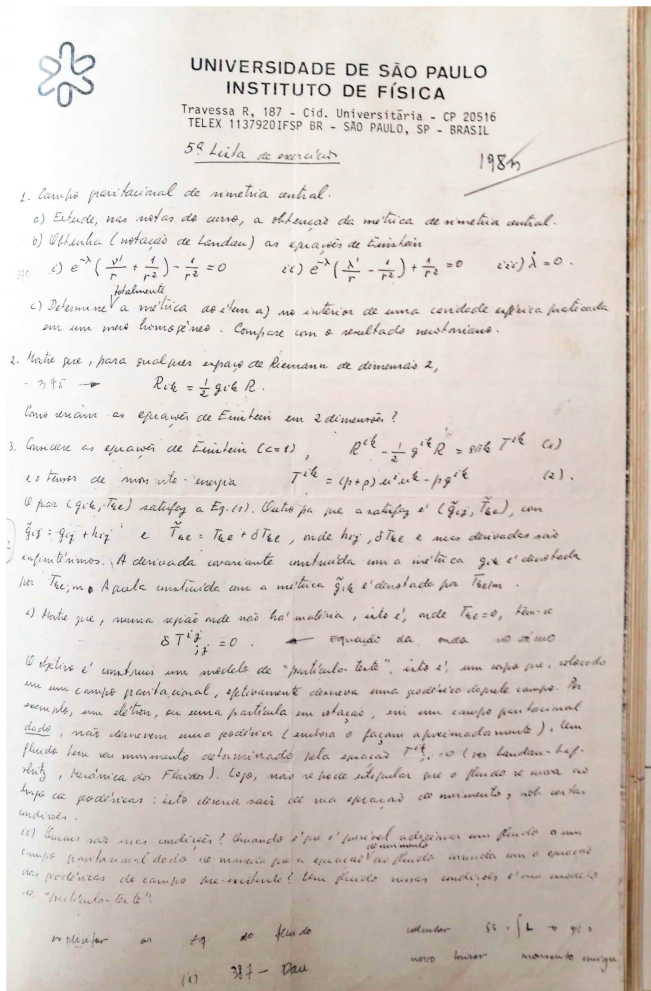 UNIVERSIDADE DE SÃO PAULO
INSTITUTO DE FÍSICA
Travessa R, 187 - Cid. Universitária - CP 20516
TELEX 1137920IFSP BR - SÃO PAULO, SP - BRASIL
5ª Lista de exercícios
1. Campo gravitacional de simetria central.
a) Estude, nas notas do curso, a obtenção da métrica de simetria central.
b) Obtenha (notação de Landau) as equações de Einstein
i) e^{-λ} (ν'/r + 1/r²) - 1/r² = 0 ii) e^{-λ} (λ'/r - 1/r²) + 1/r² = 0 iii) λ̇ = 0.
totalmente
c) Determine a métrica do item a) no interior de uma cavidade esférica praticada
em um meio homogêneo. Compare com o resultado newtoniano.
2. Mostre que, para qualquer espaço de Riemann de dimensão 2,
R_{ik} = ½ g_{ik} R.
Como seriam as equações de Einstein em 2 dimensões?
3. Considere as equações de Einstein (c=1), R^{ik} - ½ g^{ik} R = T^{ik} (1)
e o tensor de momento-energia T^{ik} = (p+ρ) u^i u^k - p g^{ik} (2).
O par (g_{ik}, T_{ik}) satisfaz a Eq. (1). Outro par que a satisfaz é com
g̃_{ij} = g_{ij} + h_{ij} e onde e suas derivadas são
infinitésimos. A derivada covariante construída com a métrica g_{ik} é denotada
por Aquela construída com a métrica g̃_{ik} é denotada por
i) Mostre que, numa região onde não há matéria, isto é, onde tem-se
δT^{ij}_{;j} = 0. ← equação da onda no
O objetivo é construir um modelo de "partícula-teste", isto é, um corpo que, colocado
em um campo gravitacional, efetivamente descreva uma geodésica daquele campo. Por
exemplo, um elétron, ou uma partícula em rotação, em um campo gravitacional
dado, não descrevem uma geodésica (embora o façam aproximadamente). Um
fluido tem seu movimento determinado pela equação (ver Landau-Lif-
shitz, Mecânica dos Fluidos). Logo, não se pode estipular que o fluido se mova ao
longo de geodésicas: isto deveria sair de sua equação de movimento, sob certas
condições.
ii) Quais são essas condições? Quando é que é possível adicionar um fluido a um
campo gravitacional dado de maneira que a equação de movimento do fluido coincida com a equação
das geodésicas do campo pré-existente? Um fluido nessas condições é um modelo
de "partícula-teste".
as Eq do fluido
calcular
(1) 387 -
novo tensor momento energia